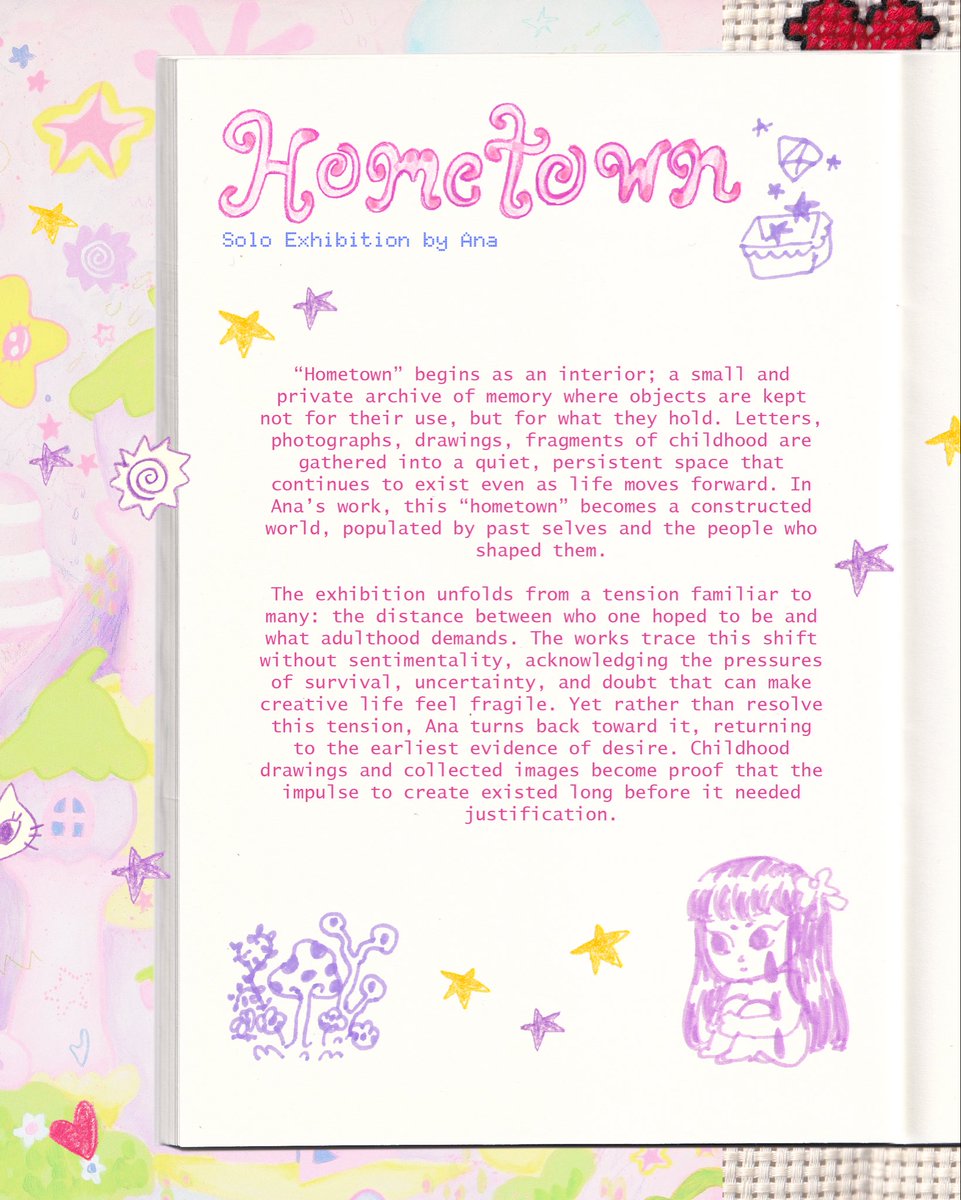 Hometown
Solo Exhibition by Ana
“Hometown” begins as an interior; a small and
private archive of memory where objects are kept
not for their use, but for what they hold. Letters,
photographs, drawings, fragments of childhood are
gathered into a quiet, persistent space that
continues to exist even as life moves forward. In
Ana’s work, this “hometown” becomes a constructed
world, populated by past selves and the people who
shaped them.
The exhibition unfolds from a tension familiar to
many: the distance between who one hoped to be and
what adulthood demands. The works trace this shift
without sentimentality, acknowledging the pressures
of survival, uncertainty, and doubt that can make
creative life feel fragile. Yet rather than resolve
this tension, Ana turns back toward it, returning
to the earliest evidence of desire. Childhood
drawings and collected images become proof that the
impulse to create existed long before it needed
justification.